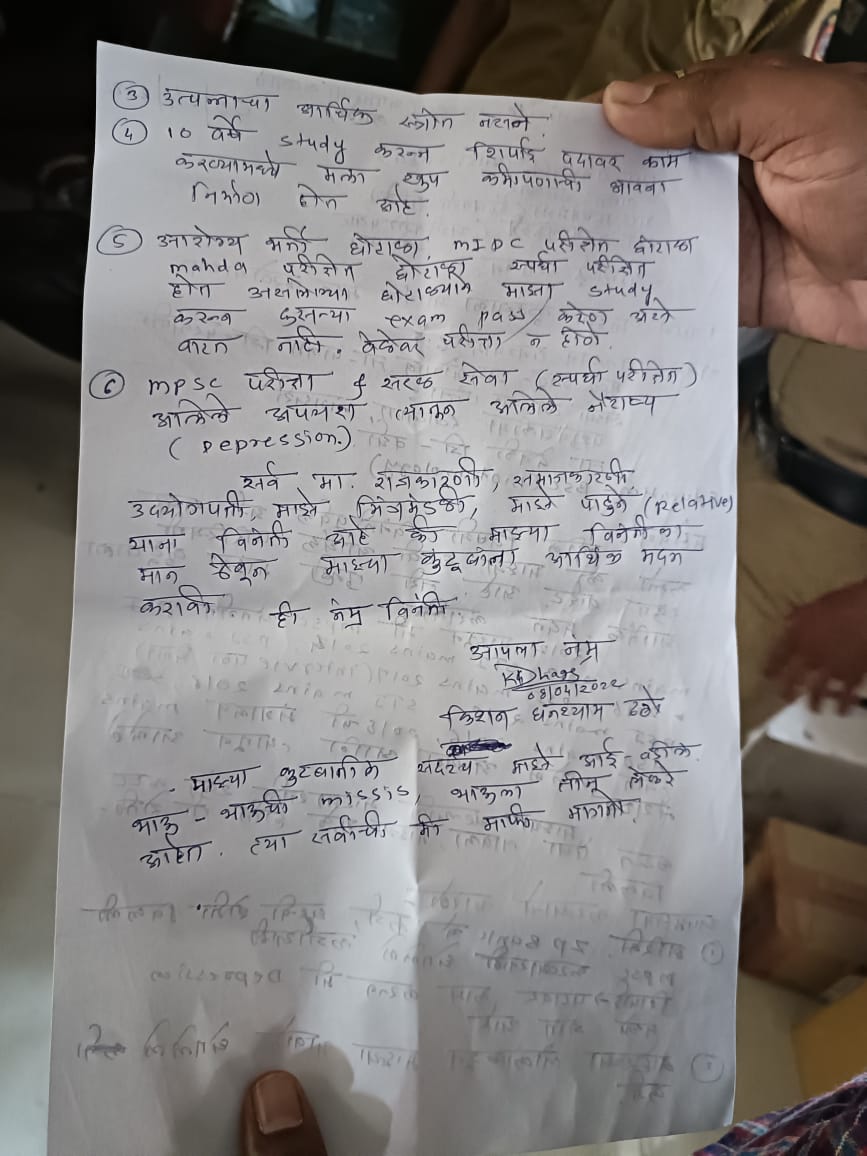 ③ उत्पन्नाचा आर्थिक स्त्रोत नसने.
④ 10 वर्षे study करुन शिपाई पदावर काम
करण्यामध्ये मला खुप कमीपणाची भावना
निर्माण होत आहे.
⑤ आरोग्य भर्ती घोटाळा, MIDC परीक्षेत घोटाळा
mahda परीक्षेत घोटाळा स्पर्धा परीक्षेत
होत असलेल्या घोटाळ्याने माझा study
करुन exam pass करेल असे
वाटत नाही. वेळेवर परीक्षा न होणे.
⑥ MPSC परीक्षा & सरळ सेवा (स्पर्धा परीक्षेत)
आलेले अपयश त्यातून आलेले नैराष्य
(Depression.)
सर्व मा. राजकारणी, समाजकारणी,
उदयोगपती, माझे मित्रमंडळी, माझे पाहुने (Relative)
याना विनंती आहे की माझ्या विनंतीला
मान ठेवून माझ्या कुंटूबाला आर्थिक मदत
करावी ही नम्र विनंती
आपला नम्र
KGDhage
08/04/2022
किशन घनश्याम ढगे
- माझ्या कुटूबातील सदस्य माझे आई-वडील
भाऊ - भाऊची missis, भाऊला तीन लेकरे
आहेत. त्या सर्वांची मी माफी मागतो.